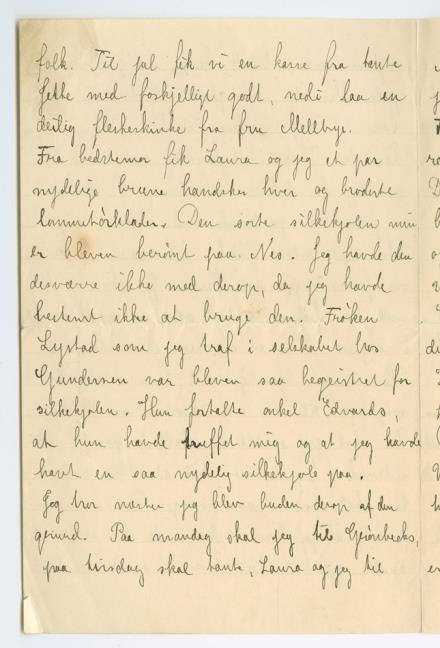 folk. Til jul fik vi en kasse fra tante
Jette med forskjelligt godt, nedi laa en
deilig fleskeskinke fra fru Mellbye.
Fra bedstemor fik Laura og jeg et par
nydelige brune handsker hver og broderte
lommetørklæder. Den sorte silkekjolen min
er bleven berømt paa Nes. Jeg havde den
desværre ikke med derop, da jeg havde
bestemt ikke at bruge den. Frøken
Lystad som jeg traf i selskabet hos
Gundersen var bleven saa begeistret for
silkekjolen. Hun fortalte onkel Edvards,
at hun havde truffet mig og at jeg havde
havt en saa nydelig silkekjole paa.
Jeg tror næsten jeg blev buden derop af den
grund. Paa mandag skal jeg til
paa tirsdag skal tante, Laura og jeg til